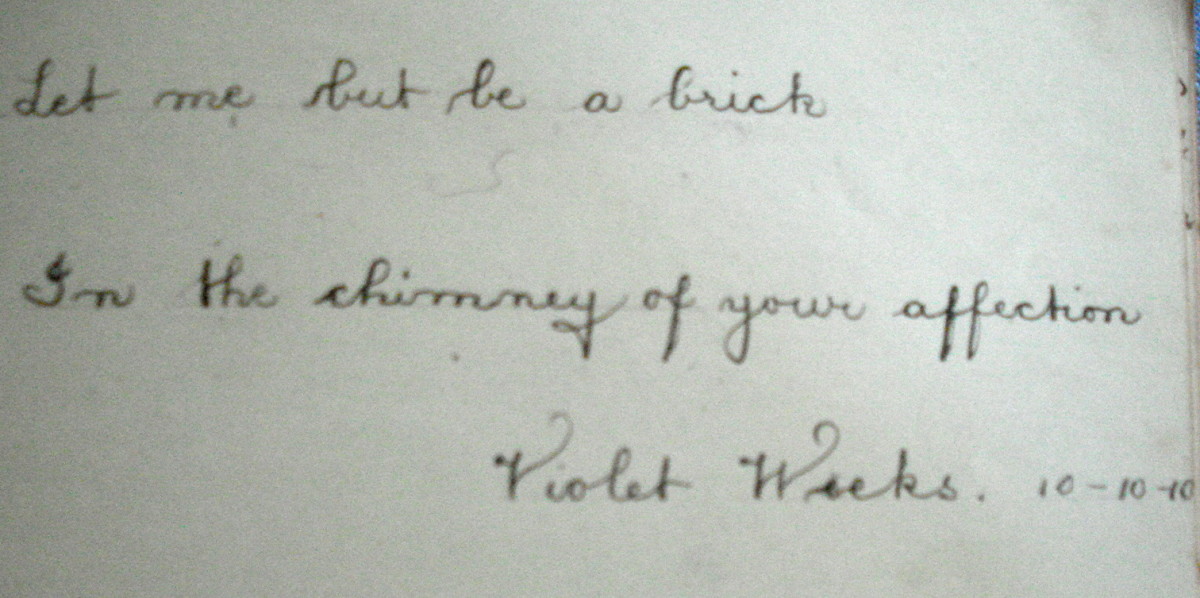 Let me but be a brick
In the chimney of your affection
Violet Weeks. 10-10-10